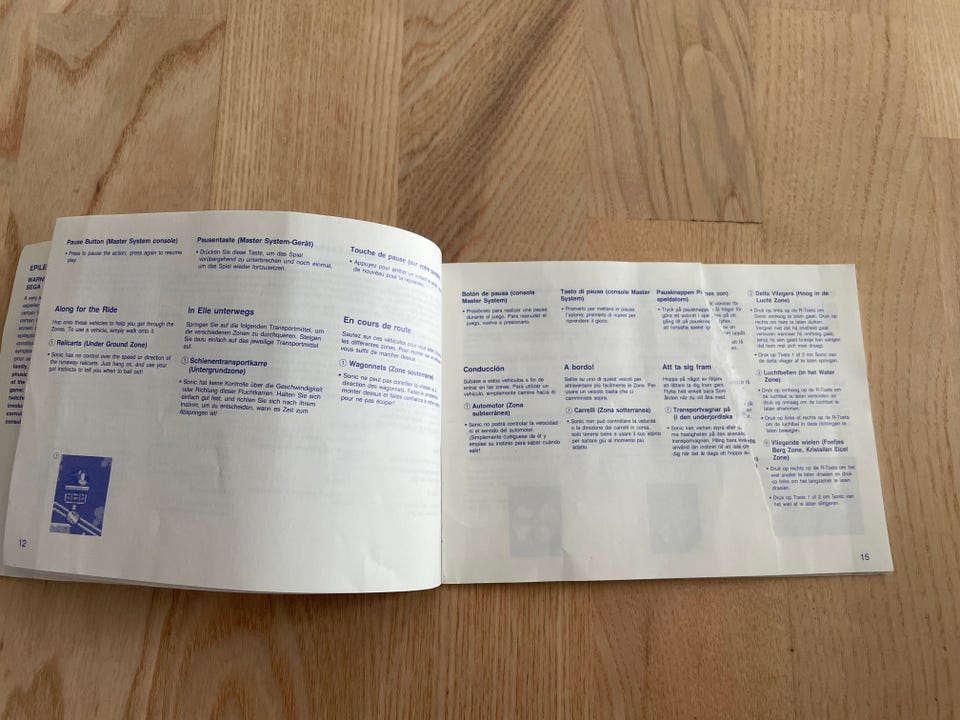 EPILE
WARN
SEGA
A very
experien
certain
certain
screen
condition
symptom
prior se
family,
physic
of the
game:
twitche
involun
convul
consul
Pause Button (Master System console)
• Press to pause the action; press again to resume
play.
Along for the Ride
Hop onto these vehicles to help you get through the
Zones. To use a vehicle, simply walk onto it.
① Railcarts (Under Ground Zone)
• Sonic has no control over the speed or direction of
the runaway railcarts. Just hang on, and use your
gut instincts to tell you when to bail out!
①
12
Pausentaste (Master System-Gerät)
• Drücken Sie diese Taste, um das Spiel
vorübergehend zu unterbrechen und noch einmal,
um das Spiel wieder fortzusetzen.
In Eile unterwegs
Springen Sie auf die folgenden Transportmittel, um
die verschiedenen Zonen zu durchqueren. Steigen
Sie dazu einfach auf das jeweilige Transportmittel
auf.
① Schienentransportkarre
(Untergrundzone)
• Sonic hat keine Kontrolle über die Geschwindigkeit
oder Richtung dieser Fluchtkarren. Halten Sie sich
einfach gut fest, und richten Sie sich nach Ihrem
Instinkt, um zu entscheiden, wann es Zeit zum
Abspringen ist!
Touche de pause (sur votre
• Appuyez pour arrêter un instant le
de nouveau pour la reprendre.
En cours de route
Sautez sur ces véhicules pour vous
les différentes zones. Pour monter sur
vous suffit de marcher dessus.
① Wagonnets (Zone souterraine)
• Sonic ne peut pas contrôler la vitesse
direction des wagonnets. Faites-le simplement
monter dessus et faites confiance à
pour ne pas écoper!
Botón de pausa (consola
Master System)
• Presiónelo para realizar una pausa
durante el juego. Para reanudar el
juego, vuelva a presionarlo.
Conducción
Súbase a estos vehículos a fin de
entrar en las zonas. Para utilizar un
vehículo, simplemente camine hacia él.
① Automotor (Zona
subterránea)
• Sonic no podrá controlar la velocidad
ni el sentido del automotor.
¡Simplemente cuélguese de él y
emplee su instinto para saber cuándo
salir!
Tasto di pausa (console Master
System)
• Premerlo per mettere in pausa
l'azione; premerlo di nuovo per
riprendere il gioco.
A bordo!
Salite su uno di questi veicoli per
attraversare più facilmente le Zone. Per
usare un veicolo basta che ci
camminiate sopra.
① Carrelli (Zona sotterranea)
• Sonic non può controllare la velocità
o la direzione dei carrelli in corsa,
solo tenersi bene e usare il suo istinto
per saltare giù al momento più
adatto.
Pausknappen
speldatorn)
• Tryck på pausknappen
göra ett avbrott i spelet
gång till på pausknappen
att fortsätta spelet
Att ta sig fram
Hoppa på något av
en lättare ta dig fram
Flytta helt enkelt bara Sonic
Sonic när du vill åka med.
① Transportvagnar på
(i den underjordiska
• Sonic kan varken styra eller
ma hastigheten på den skenande
transportvagnen. Häng bara
använd din instinkt till att
dig när det är dags att hoppa av
③ Delta Vliegers (Hoog in de
Lucht Zone)
• Druk op links om de R-Toets om
Sonic omhoog te laten gaan. Druk op
rechts om hem te laten duiken.
Vergeet niet dat hij snelheid gaat
verliezen wanneer hij omhoog gaat,
terwijl hij een goed briesje kan vangen
dat hem wat zich mee draagt.
• Druk op Toets 1 of 2 om Sonic van
de delta vlieger af te laten springen.
Luchtbellen (in het Water
Zone)
• Druk op omhoog op de R-Toets om
de luchtbel te laten versnellen en
druk op omlaag om de luchtbel te
laten afremmen.
• Druk op links of rechts op de R-Toets
om de luchtbel in deze richtingen te
laten bewegen.
④ Vliegende wielen (Foefjes
Berg Zone, Kristallen Eicel
Zone)
• Druk op rechts op de R-Toets om het
wiel sneller te laten draaien en druk
op links om het langzamer te laten
draaien.
• Druk op Toets 1 of 2 om Sonic van
het wiel af te laten slingeren.
15